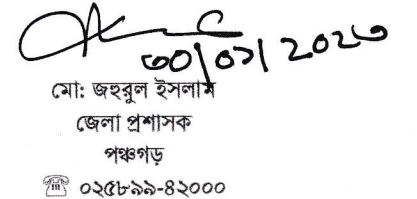 ৩০/০১/২০২৩
মো: জহুরুল ইসলাম
জেলা প্রশাসক
পঞ্চগড়
☎ ০২৫৮৯৯-৪২০০০